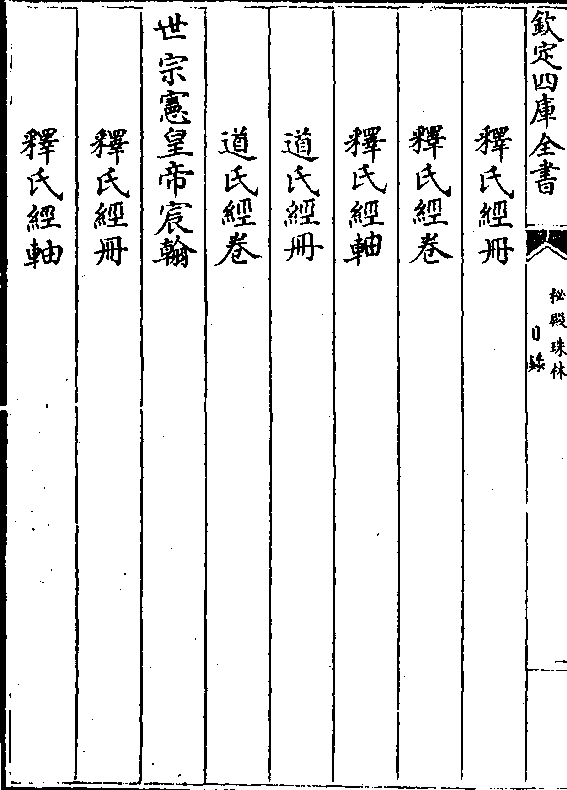 欽定四庫全書
秘殿珠林
目錄
一
釋氏經冊
釋氏經卷
釋氏經軸
道氏經冊
道氏經卷
世宗憲皇帝宸翰
釋氏經冊
釋氏經軸